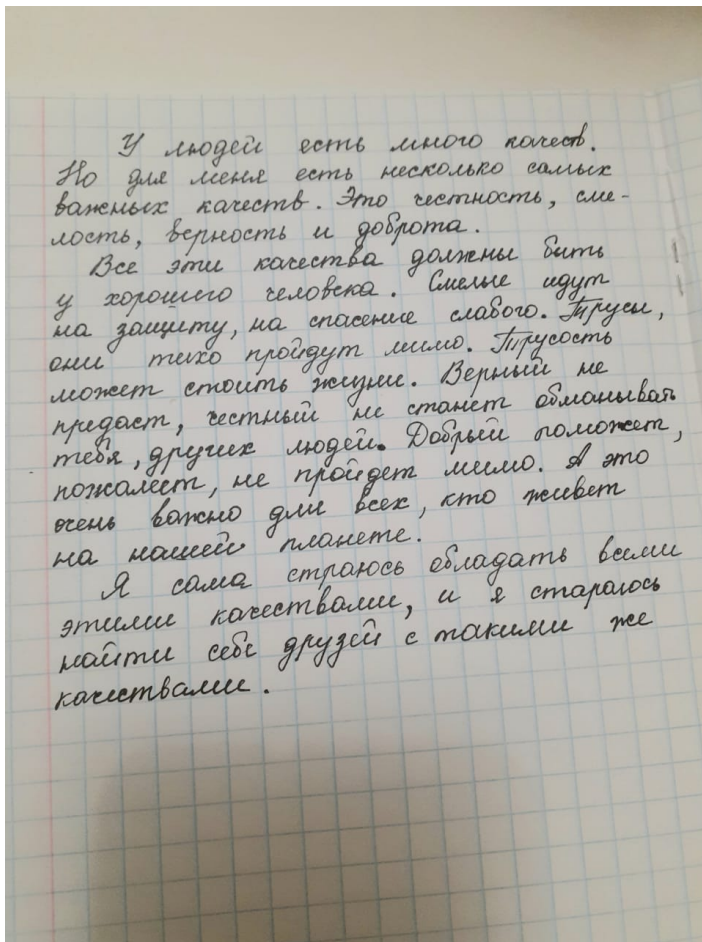 У людей есть много качеств.
Но для меня есть несколько самых
важных качеств. Это честность, сме-
лость, верность и доброта.
Все эти качества должны быть
у хорошего человека. Смелые идут
на защиту, на спасение слабого. Трусы,
они тихо пройдут мимо. Трусость
может стоить жизни. Верный не
предаст, честный не станет обманывать
тебя, других людей. Добрый поможет,
пожалеет, не пройдет мимо. А это
очень важно для всех, кто живет
на нашей планете.
Я сама страюсь обладать всеми
этими качествами, и я стараюсь
найти себе друзей с такими же
качествами.